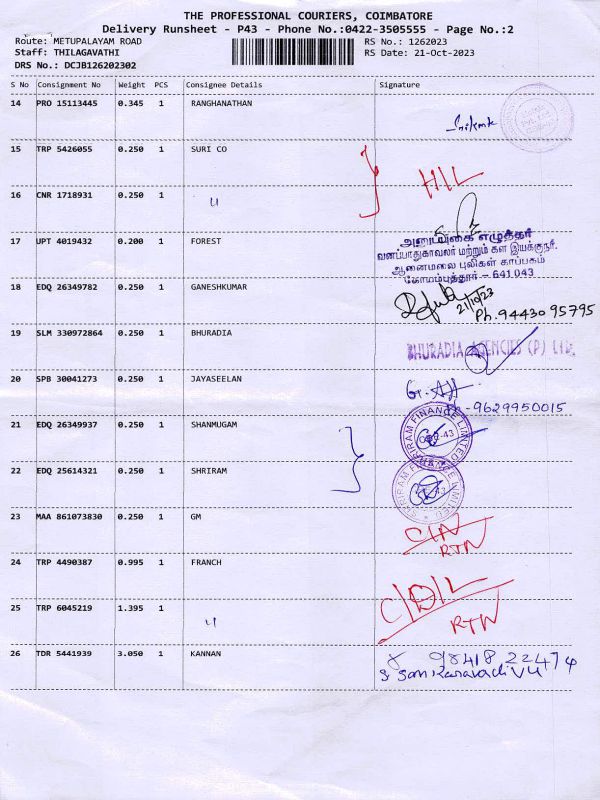 THE PROFESSIONAL COURIERS, COIMBATORE
Delivery Runsheet - P43 - Phone No.:0422-3505555 - Page No.:2
Route: METUPALAYAM ROAD
RS No.: 1262023
Staff: THILAGAVATHI
RS Date: 21-Oct-2023
DRS No.: DCJB126202302
S No Consignment No Weight PCS Consignee Details Signature
14 PRO 15113445 0.345 1 RANGHANATHAN
15 TRP 5426055 0.250 1 SURI CO
HIL
16 CNR 1718931 0.250 1 〃
17 UPT 4019432 0.200 1 FOREST
வனப்பாதுகாவலர் மற்றும் கள இயக்குநர்,
ஆனைமலை புலிகள் காப்பகம்
கோயம்புத்தூர் - 641 043
18 EDQ 26349782 0.250 1 GANESHKUMAR
21/10/23
Ph. 94430 95795
19 SLM 330972864 0.250 1 BHURADIA
BHURADIA AGENCIES (P) LTD.
20 SPB 30041273 0.250 1 JAYASEELAN
Ph - 9629950015
21 EDQ 26349937 0.250 1 SHANMUGAM
SHRIRAM FINANCE LIMITED
22 EDQ 25614321 0.250 1 SHRIRAM
SHRIRAM FINANCE LIMITED
23 MAA 861073830 0.250 1 GM
RTN
24 TRP 4490387 0.995 1 FRANCH
25 TRP 6045219 1.395 1 〃
RTN
26 TDR 5441939 3.050 1 KANNAN
98418 22474